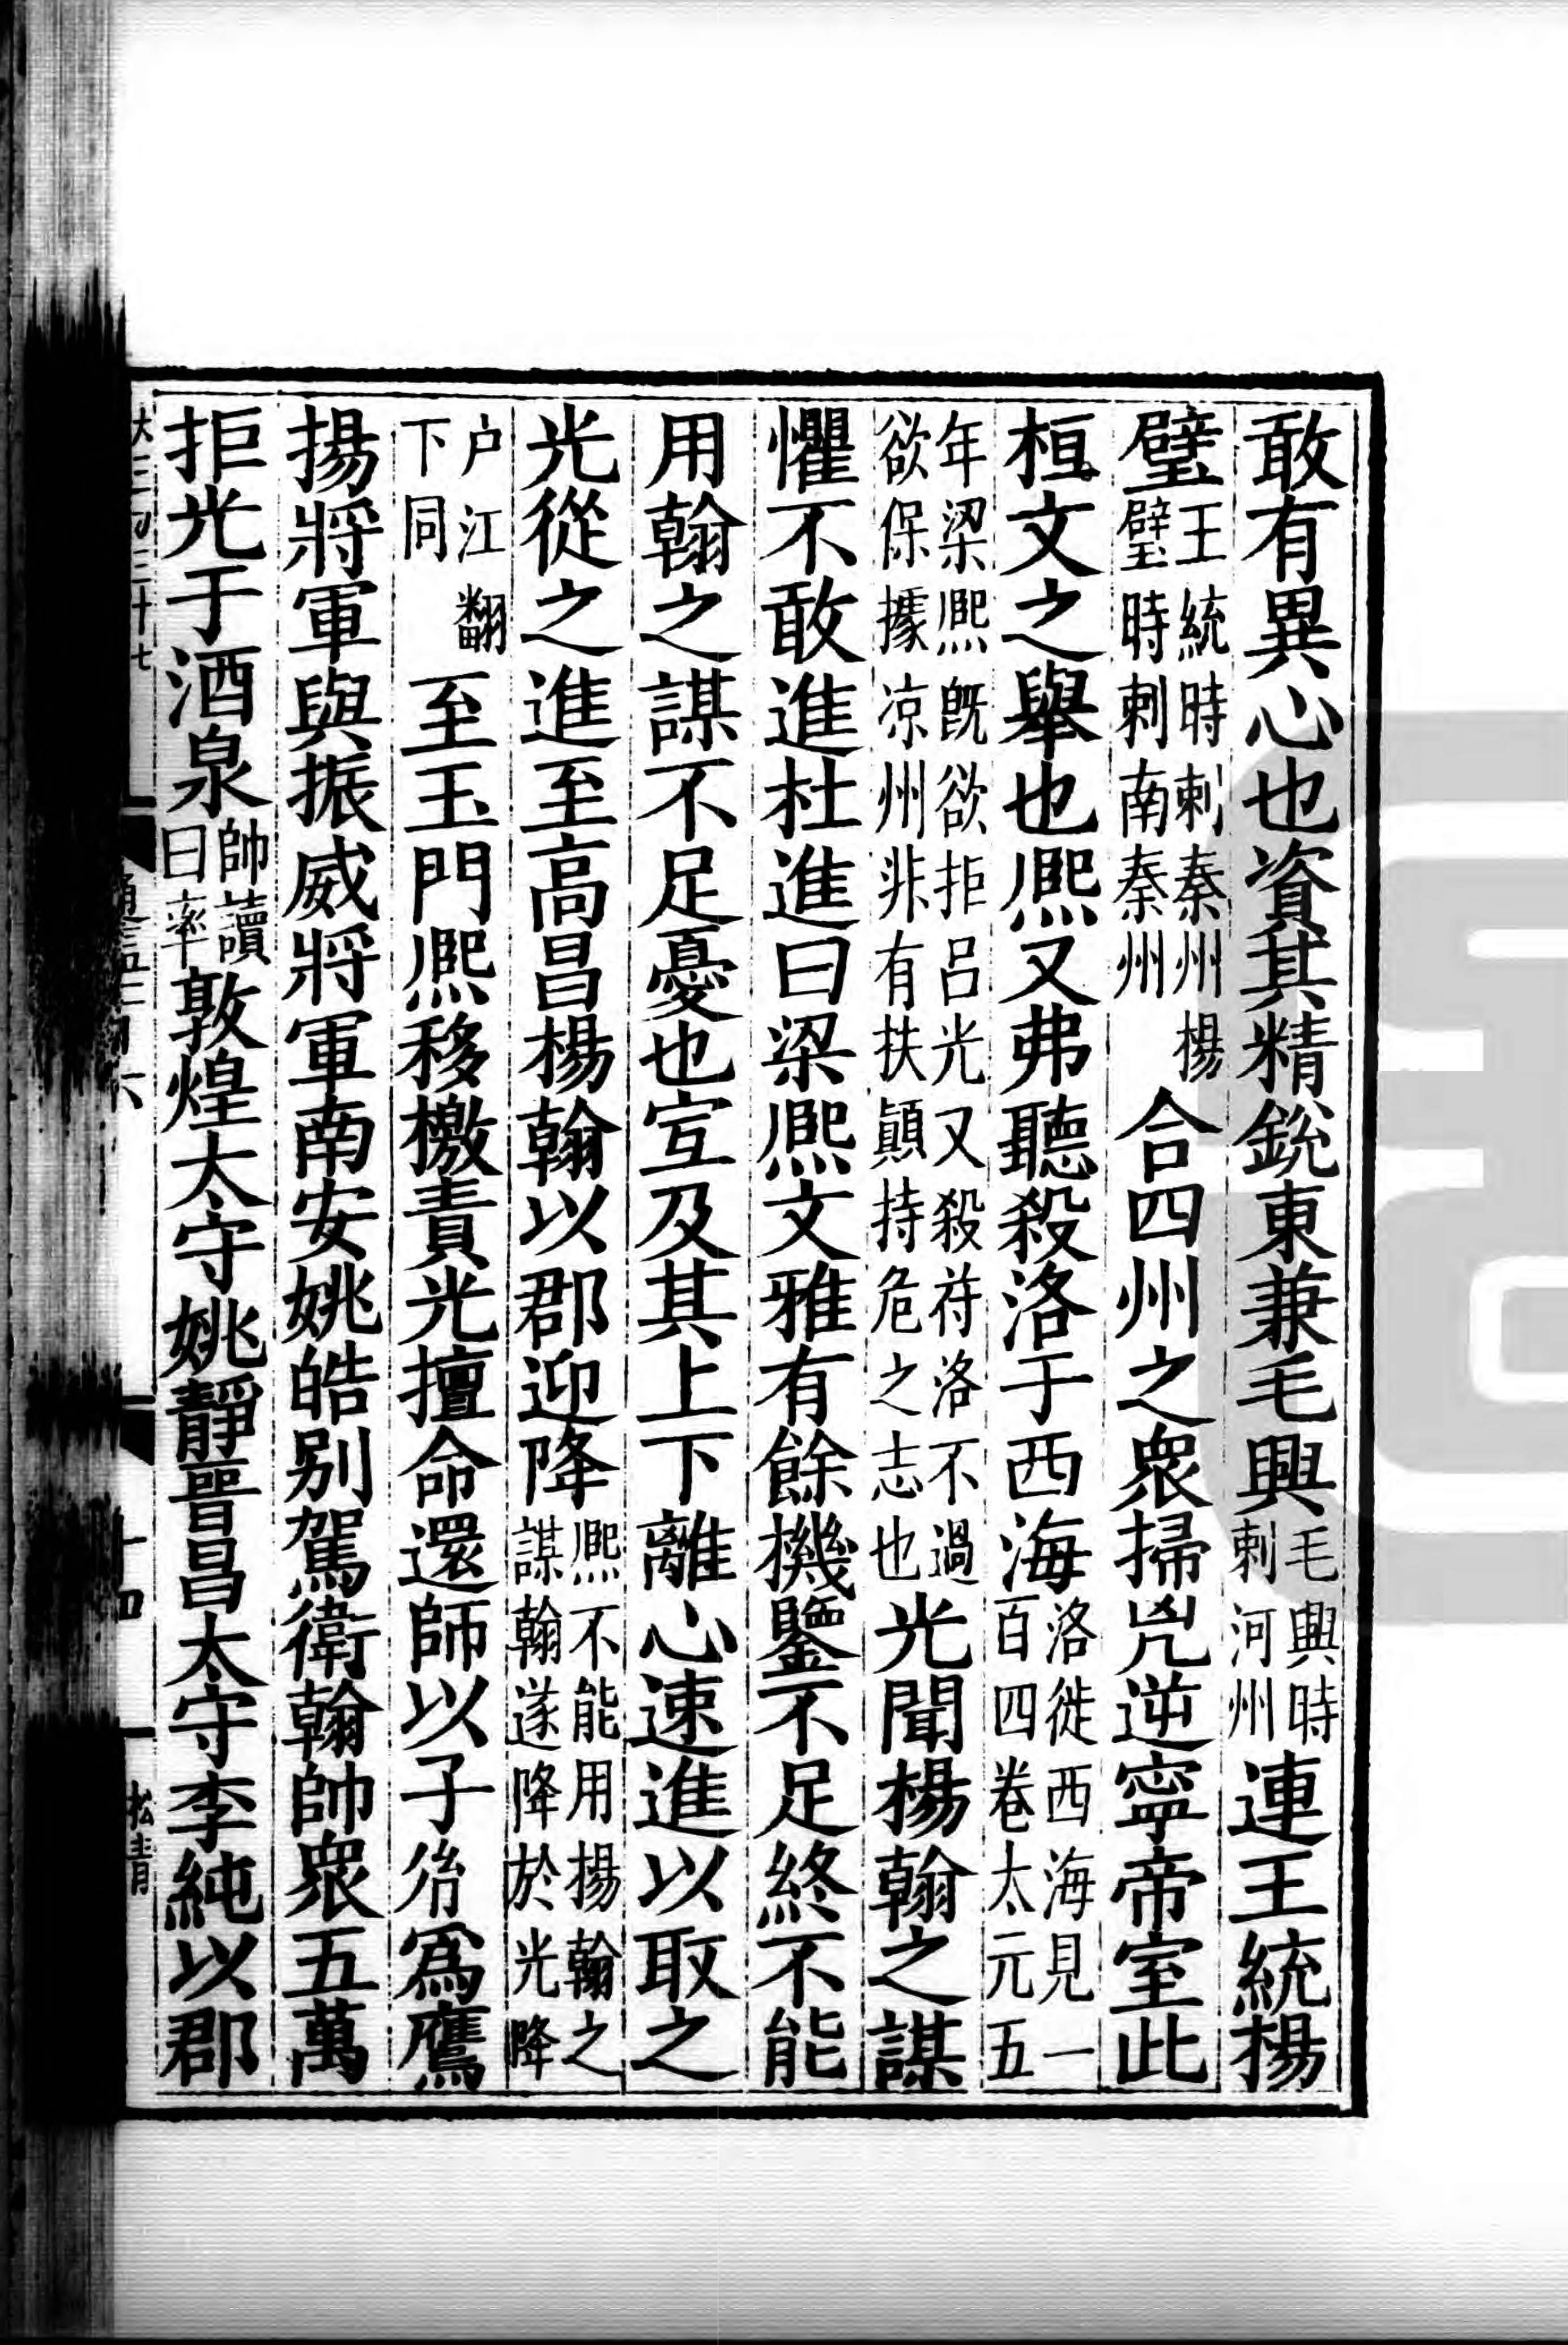 敢有異心也資其精銳東兼毛興毛興時刺河州連王統楊
璧王統時刺秦州楊璧時刺南秦州合四州之衆掃兇逆寧帝室此
桓文之舉也熈又弗聽殺洛于西海洛徙西海見一百四卷太元五
年梁熈旣欲拒呂光又殺苻洛不過欲保據凉州非有扶顚持危之志也光聞楊翰之謀
懼不敢進杜進曰梁熈文雅有餘機鑒不足終不能
用翰之謀不足憂也宜及其上下離心速進以取之
光從之進至高昌楊翰以郡迎降熈不能用楊翰之謀翰遂降於光降
户江翻下同至玉門熈移檄責光擅命還師以子胤爲鷹
揚將軍與振威將軍南安姚皓别駕衛翰帥衆五萬
拒光于酒泉帥讀曰率敦煌太守姚靜晉昌太守李純以郡
十四
松青